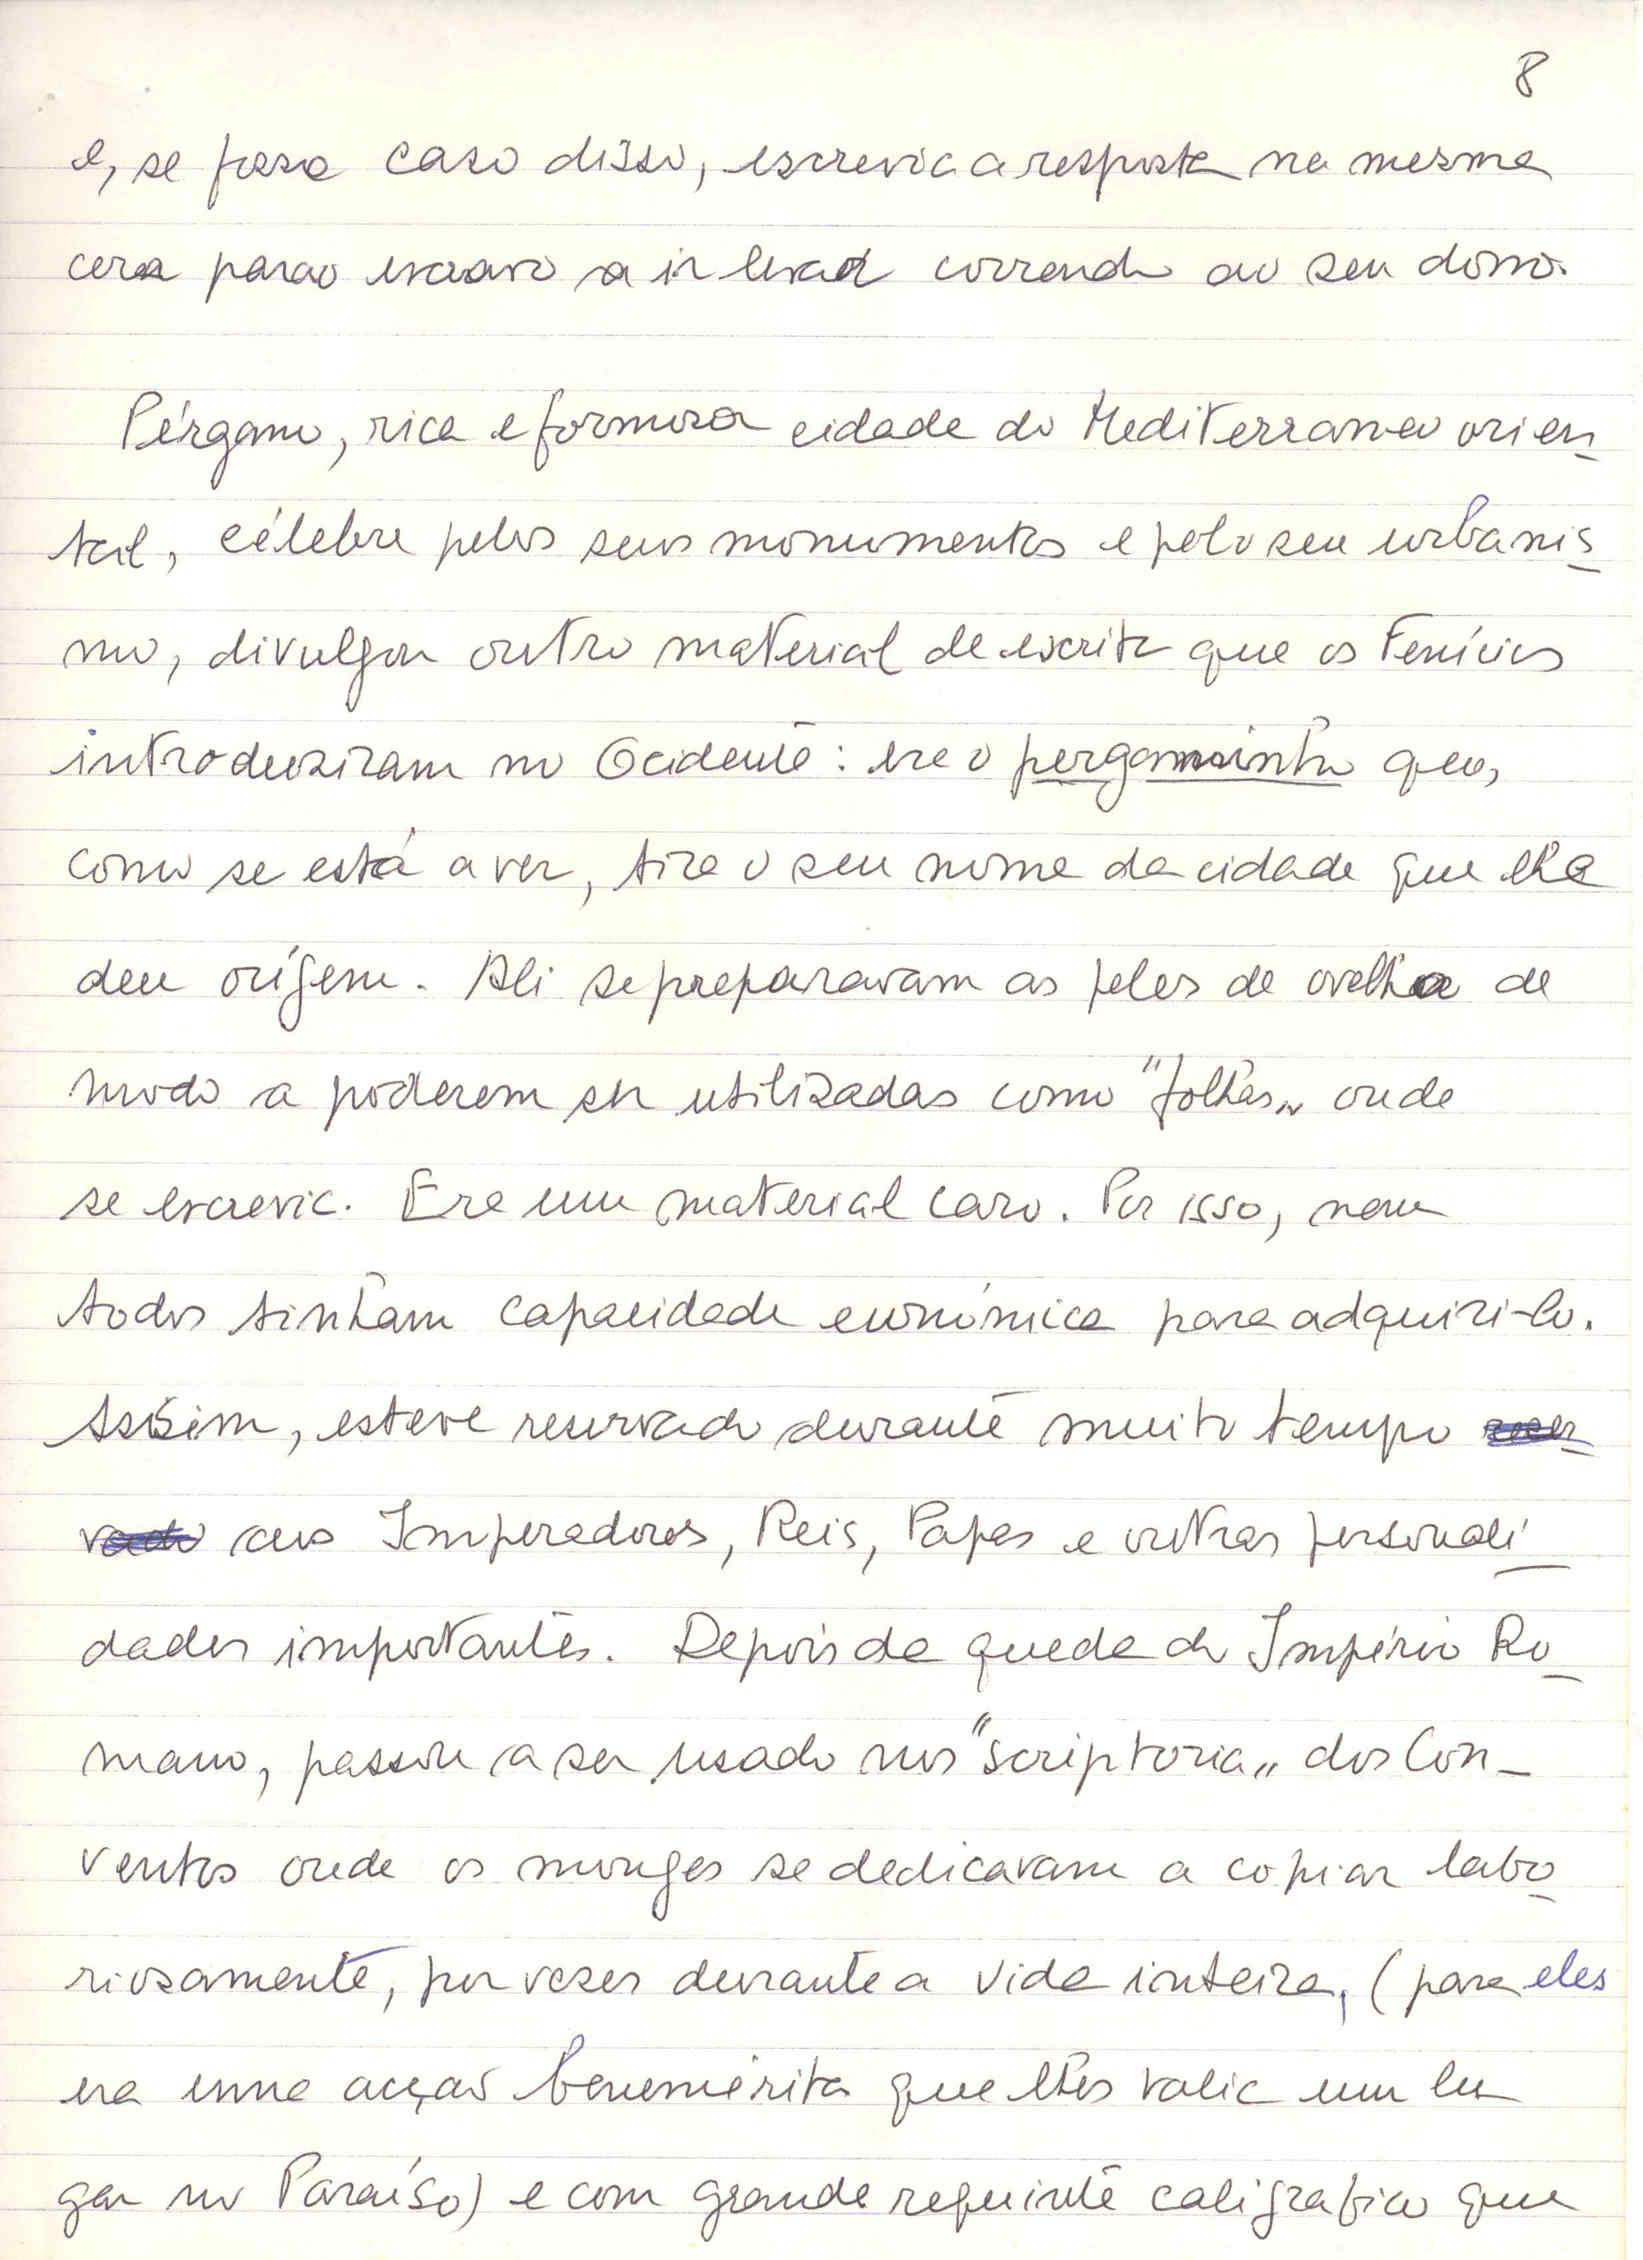 8
e, se fosse caso disso, escrevia a resposta na mesma
cera para o escravo a ir levar correndo ao seu dono.
Pérgamo, rica e formosa cidade do Mediterraneo orien-
tal, célebre pelos seus monumentos e pelo seu urbanis-
mo, divulgou outro material de escrita que os Fenícios
introduziram no Ocidente: era o pergaminho que,
como se está a ver, tira o seu nome da cidade que lhe
deu orígem. Ali se preparavam as peles de ovelha de
modo a poderem ser utilizadas como "folhas" onde
se escrevia. Era um material caro. Por isso, nem
todos tinham capacidade económica para adquiri-lo.
Assim, esteve reservado durante muito tempo reser-
vado aos Imperadores, Reis, Papas e outras personali-
dades importantes. Depois da queda do Império Ro-
mano, passou a ser usado nos "scriptoria" dos Con-
ventos onde os monges se dedicavam a copiar labo-
riosamente, por vezes durante a vida inteira, (para eles
era uma acção benemérita que lhes valia um lu
gar no Paraíso) e com grande requinte caligrafico que